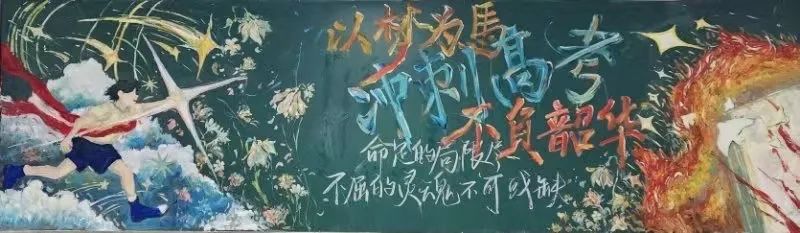 以梦为馬
冲刺高考
不负韶华
命定的局限
不屈的灵魂不可或缺